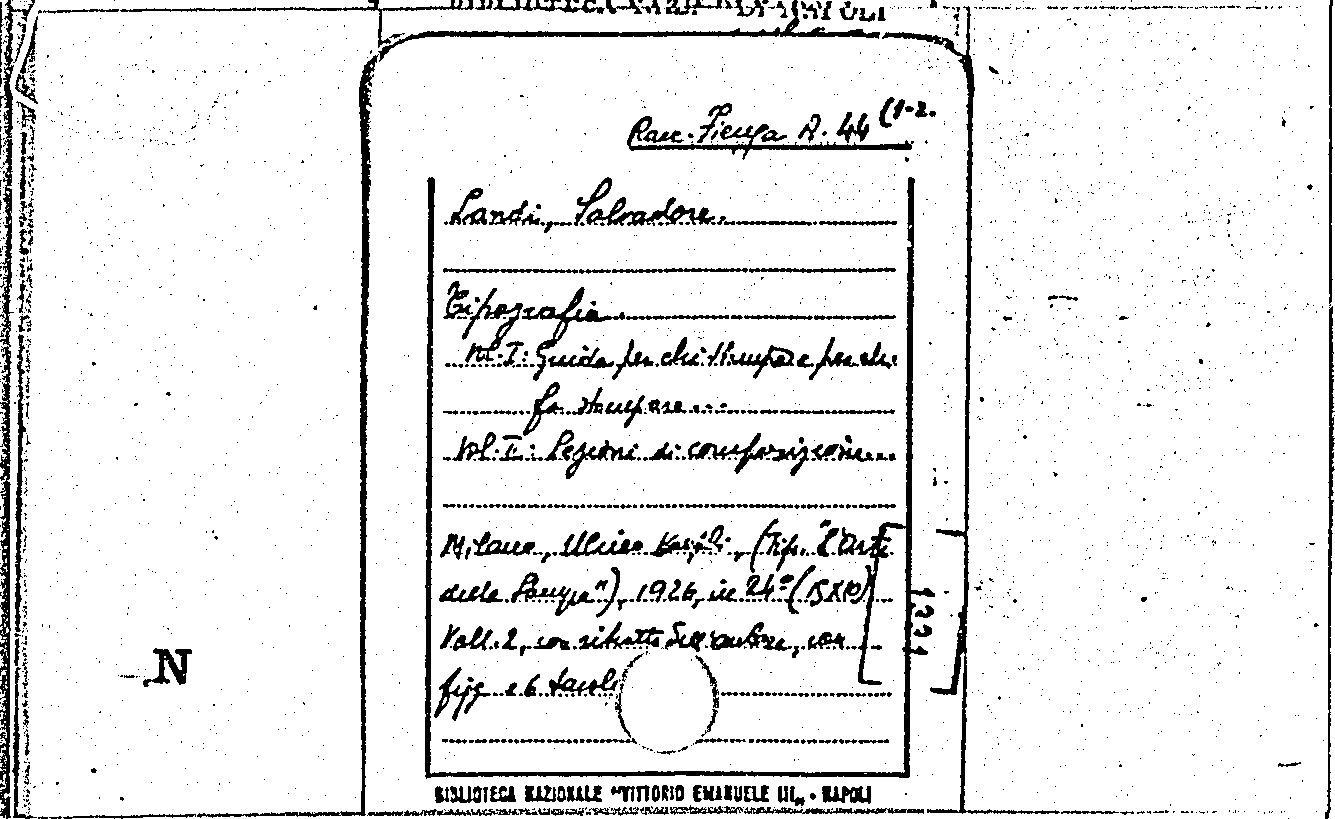 BIBLIOTECA NAZ. DI NAPOLI
Racc. Fienga A. 44 (1-2.
Landi, Salvadore.
Tipografia.
Vol. I: Guida per chi stampa e per chi
fa stampare...
Vol. II: Lezioni di composizione...
Milano, Ulrico Hoepli, (Tip. "L'Arte
della Stampa"), 1926, in 24° (15X10)
Voll. 2, con ritratto dell'autore, con
figg e 6 tavole
N
BIBLIOTECA NAZIONALE "VITTORIO EMANUELE III„ - NAPOLI